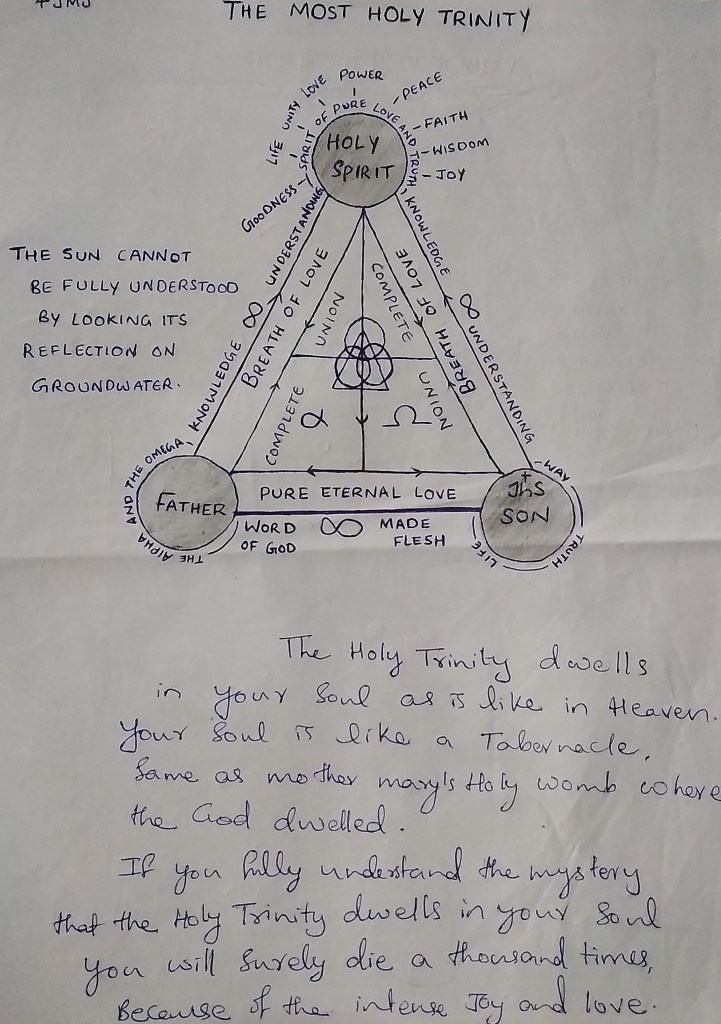 +JMJ
THE MOST HOLY TRINITY
GOODNESS
LIFE
UNITY
LOVE
POWER
PEACE
FAITH
WISDOM
JOY
SPIRIT OF PURE LOVE AND TRUTH, KNOWLEDGE ∞ UNDERSTANDING
HOLY
SPIRIT
THE SUN CANNOT
BE FULLY UNDERSTOOD
BY LOOKING ITS
REFLECTION ON
GROUNDWATER.
THE ALPHA AND THE OMEGA, KNOWLEDGE ∞ UNDERSTANDING
BREATH OF LOVE
BREATH OF LOVE
COMPLETE UNION
COMPLETE UNION
α
Ω
FATHER
PURE ETERNAL LOVE
JhS
SON
WAY
TRUTH
LIFE
WORD ∞ MADE
OF GOD FLESH
The Holy Trinity dwells
in your Soul as is like in Heaven.
Your Soul is like a Tabernacle,
Same as mother mary's Holy womb where
the God dwelled.
If you fully understand the mystery
that the Holy Trinity dwells in your Soul
You will Surely die a thousand times,
Because of the intense Joy and love.